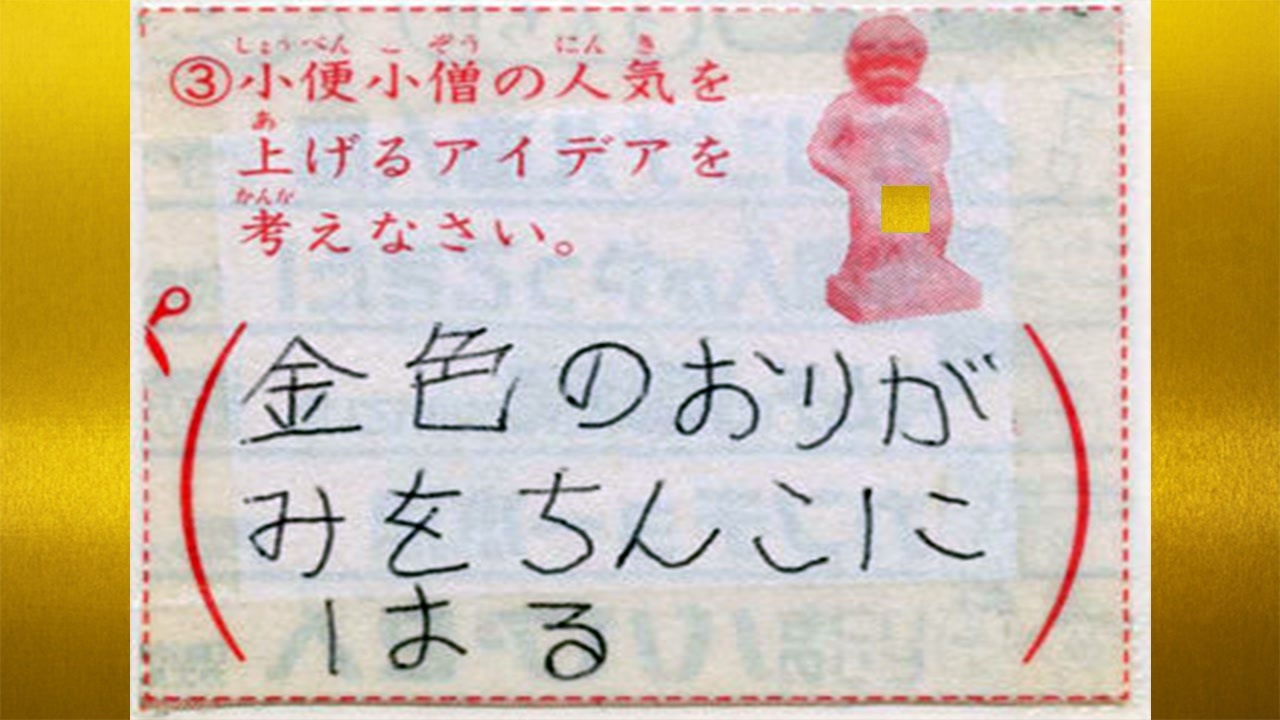 しょうべんこぞう にんき
③小便小僧の人気を
あ
上げるアイデアを
かんが
考えなさい。
金色のおりが
みをちんこに
はる